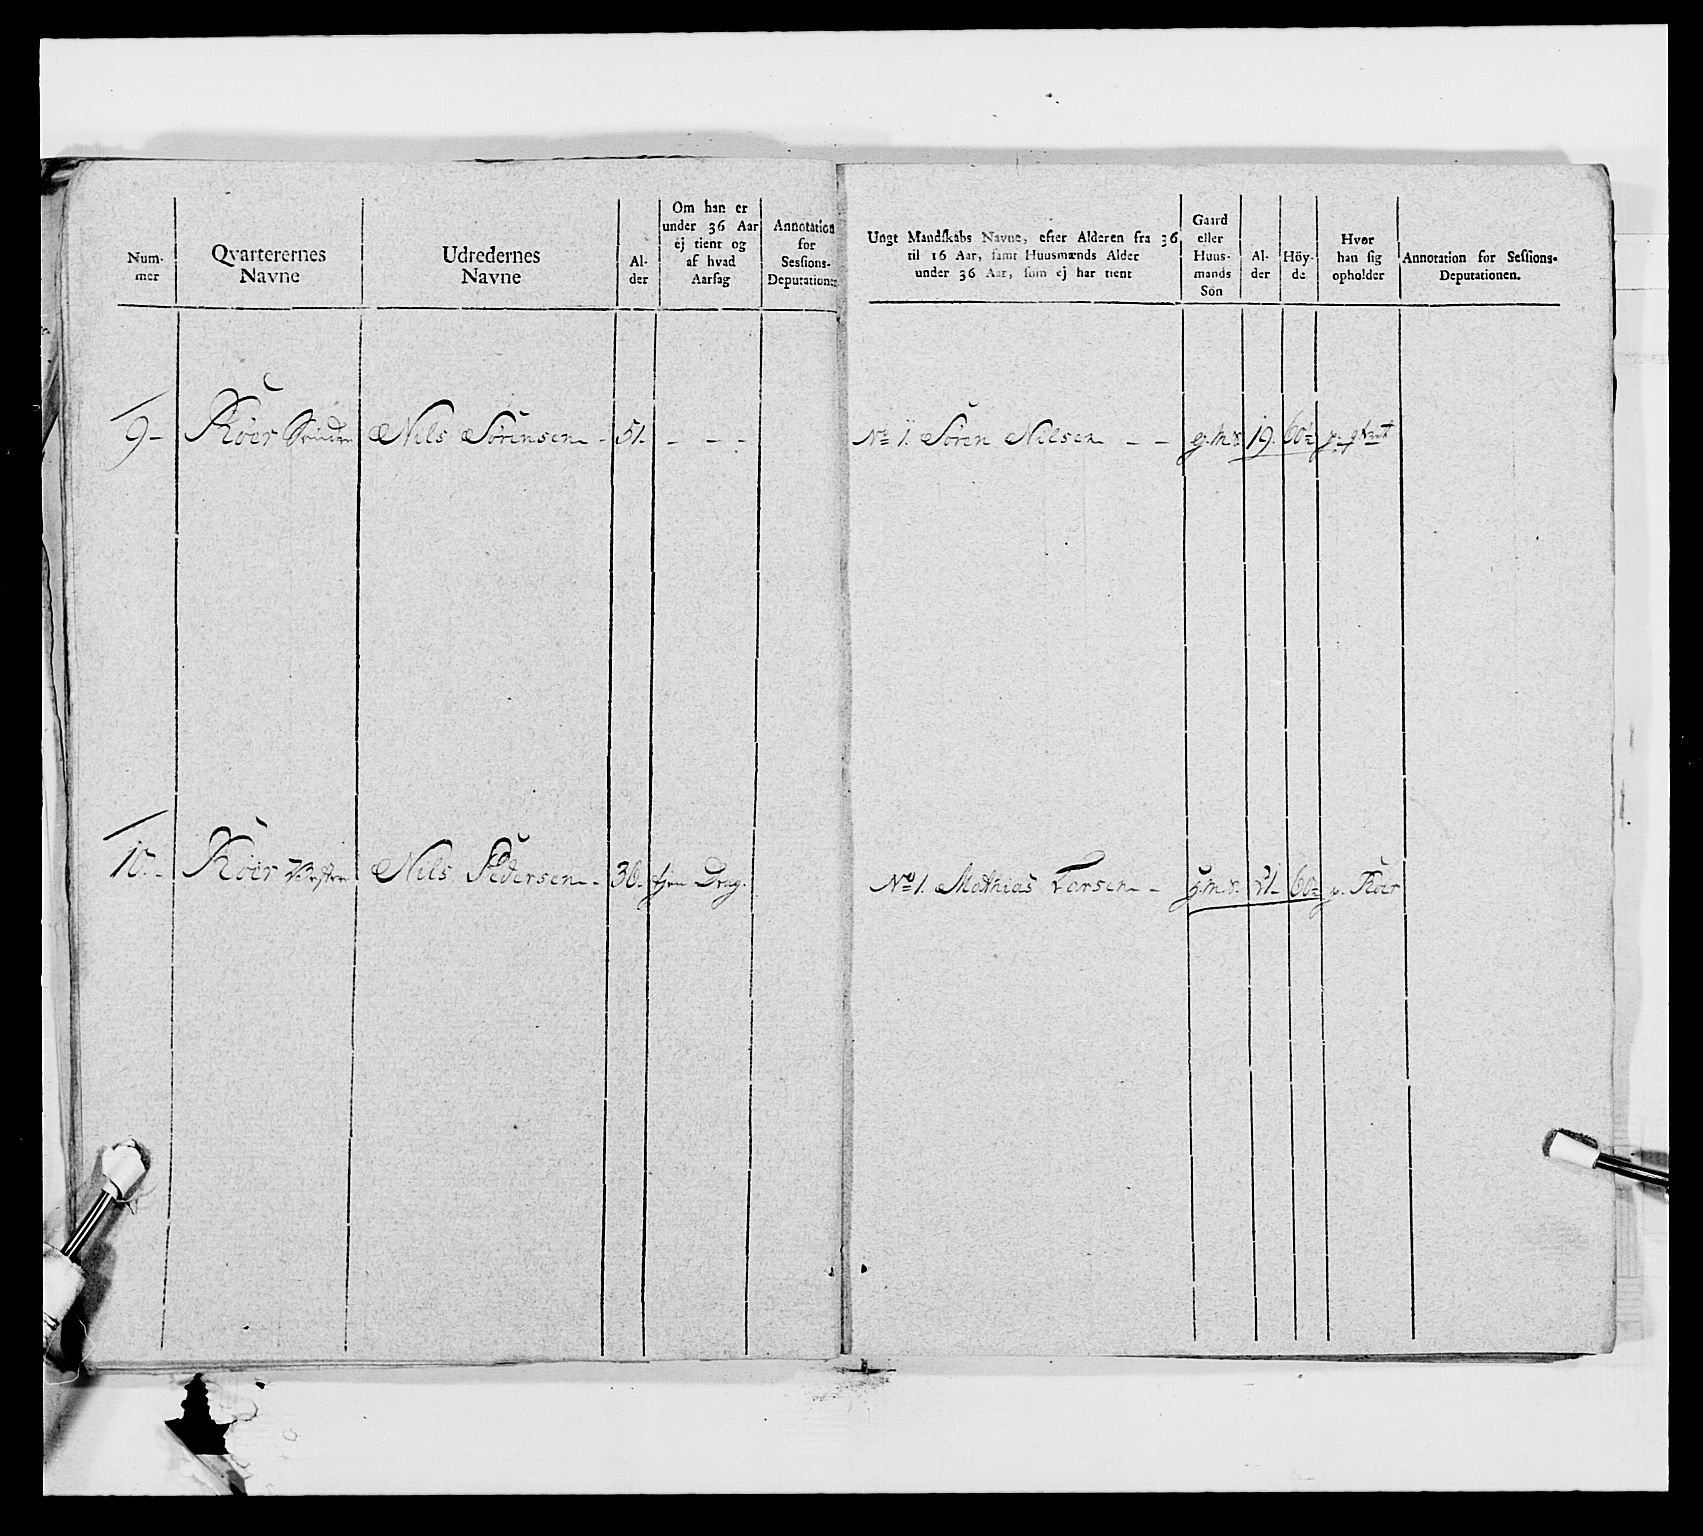 Num-
mer
Qvarterernes
Navne
Udredernes
Navne
Al-
der
Om han er
under 36 Aar
ej tient og
af hvad
Aarsag
Annotation
for
Sessions-
Deputationen
9- Röer Nils Sörensen - 51. - - -
10.- Röer Vestre Nils Pedersen - 36. tjen Drag.
Ungt Mandskabs Navne, efter Alderen fra 36
til 16 Aar, samt Huusmænds Alder
under 36 Aar, som ej har tient
Gaard
eller
Huus-
mands
Sön
Al-
der
Höy-
de
Hvor
han sig
opholder
Annotation for Sessions-
Deputationen.
No 1. Sören Nilsen - - g.m.s. 19.
No 1. Mathias Larsen - g.m.s. 21- p. Röer